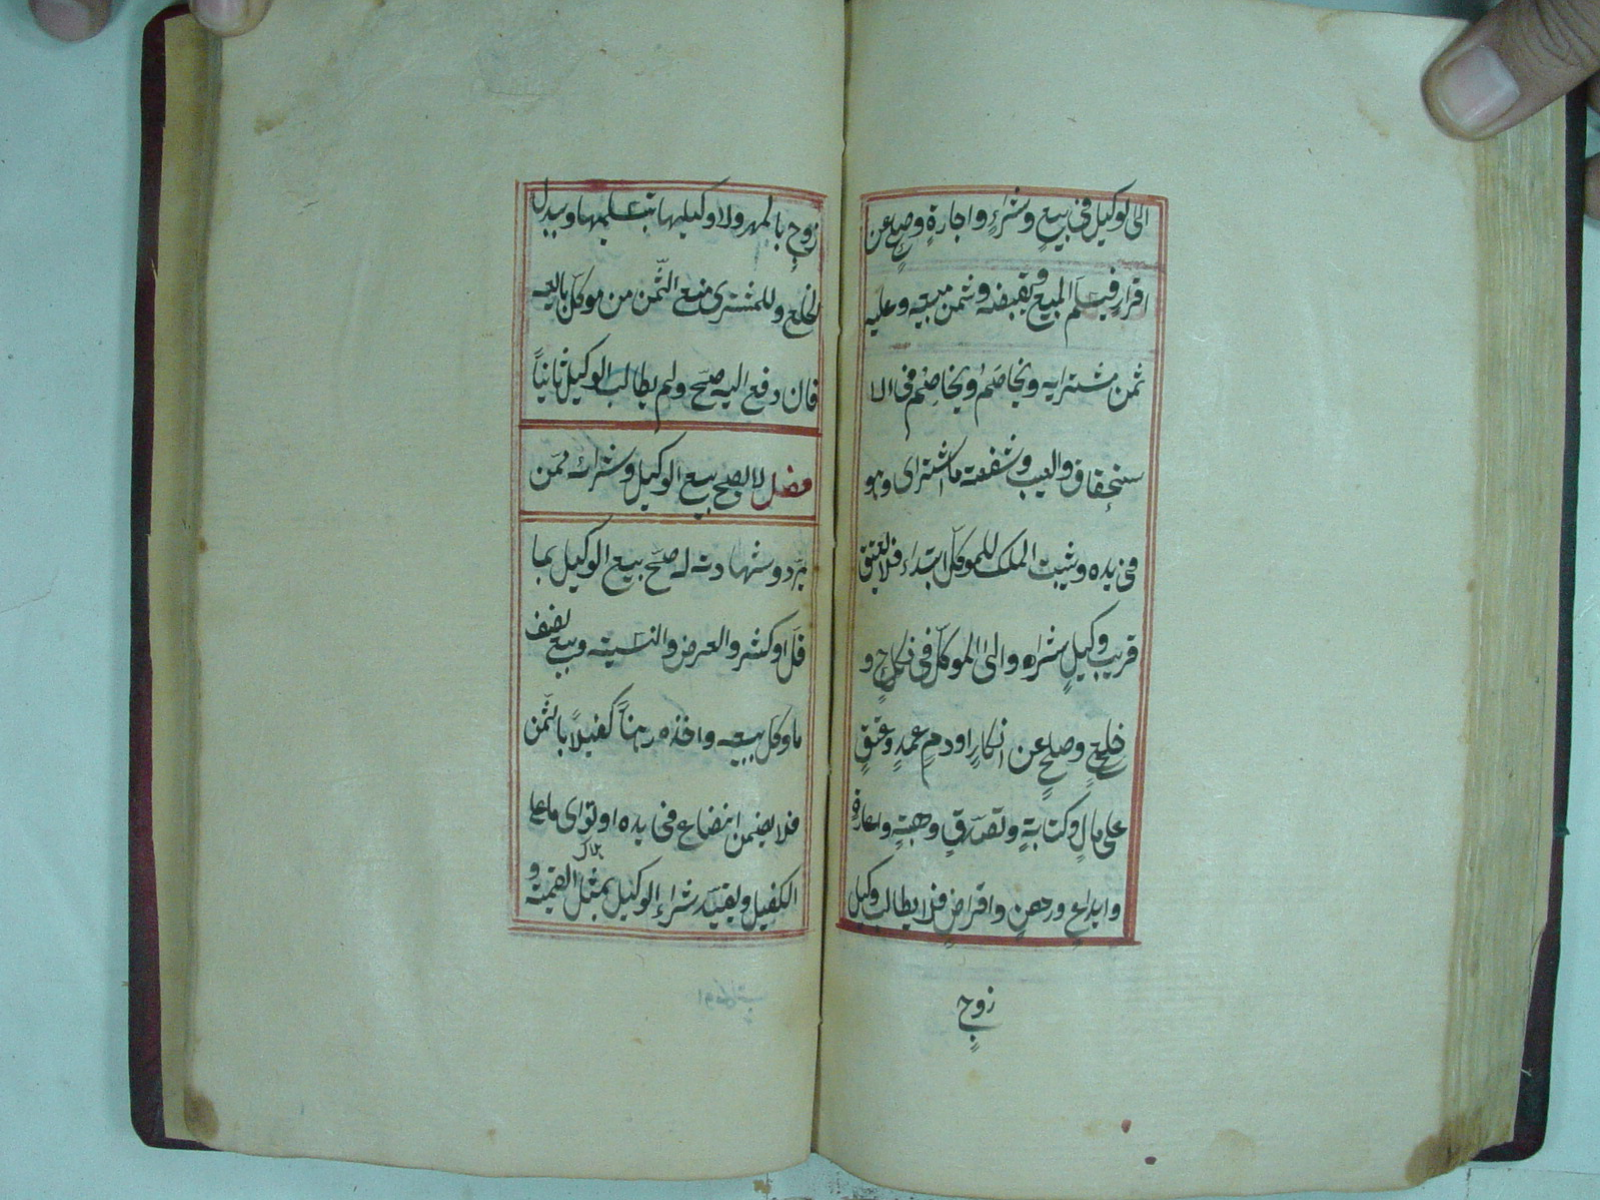 الى لوكيل فى بيع وشراءٍ واجارةٍ وصلح عن
اقرار فيسلم المبيع ويقبضه وثمن مبيعه وعليه
ثمن مشترايه ويخاصَم ويخاصِم فى الا
ستحقاق والعيب وشفعة ما اشترى وهو
فى يده ويثبت الملك للموكّل ابتداء فلا يعتق
قريب وكيلٍ شراه والى الموكّل فى نكاحٍ و
خلعٍ وصلحٍ عن انكارٍ او دمِ عمدٍ وعتقٍ
على مالٍ وكتابةٍ وتصدّقٍ وهبةٍ واعارةٍ
وايداعٍ ورهنٍ واقراضٍ فلا يطالب وكيل
زوجٍ
زوجٍ بالمهر ولا وكيلها بتسليمها وببدل
الخلع وللمشترى منع الثّمن من موكّل بايعه
فان دفع اليه صحّ ولم يطالب الوكيل ثانياً
فصل لا يصح بيع الوكيل وشراؤه ممّن
يردّ شهادته له صحّ بيع الوكيل بما
قلّ او كثر والعرض والنسيئة وبيع نصف
ما وكل ببيعه واخذه رهناً كفيلاً بالثّمن
فلا يضمن ان ضاع فى يده او توى ما على
الكفيل ويقيّد شراء الوكيل بمثل القيمة و